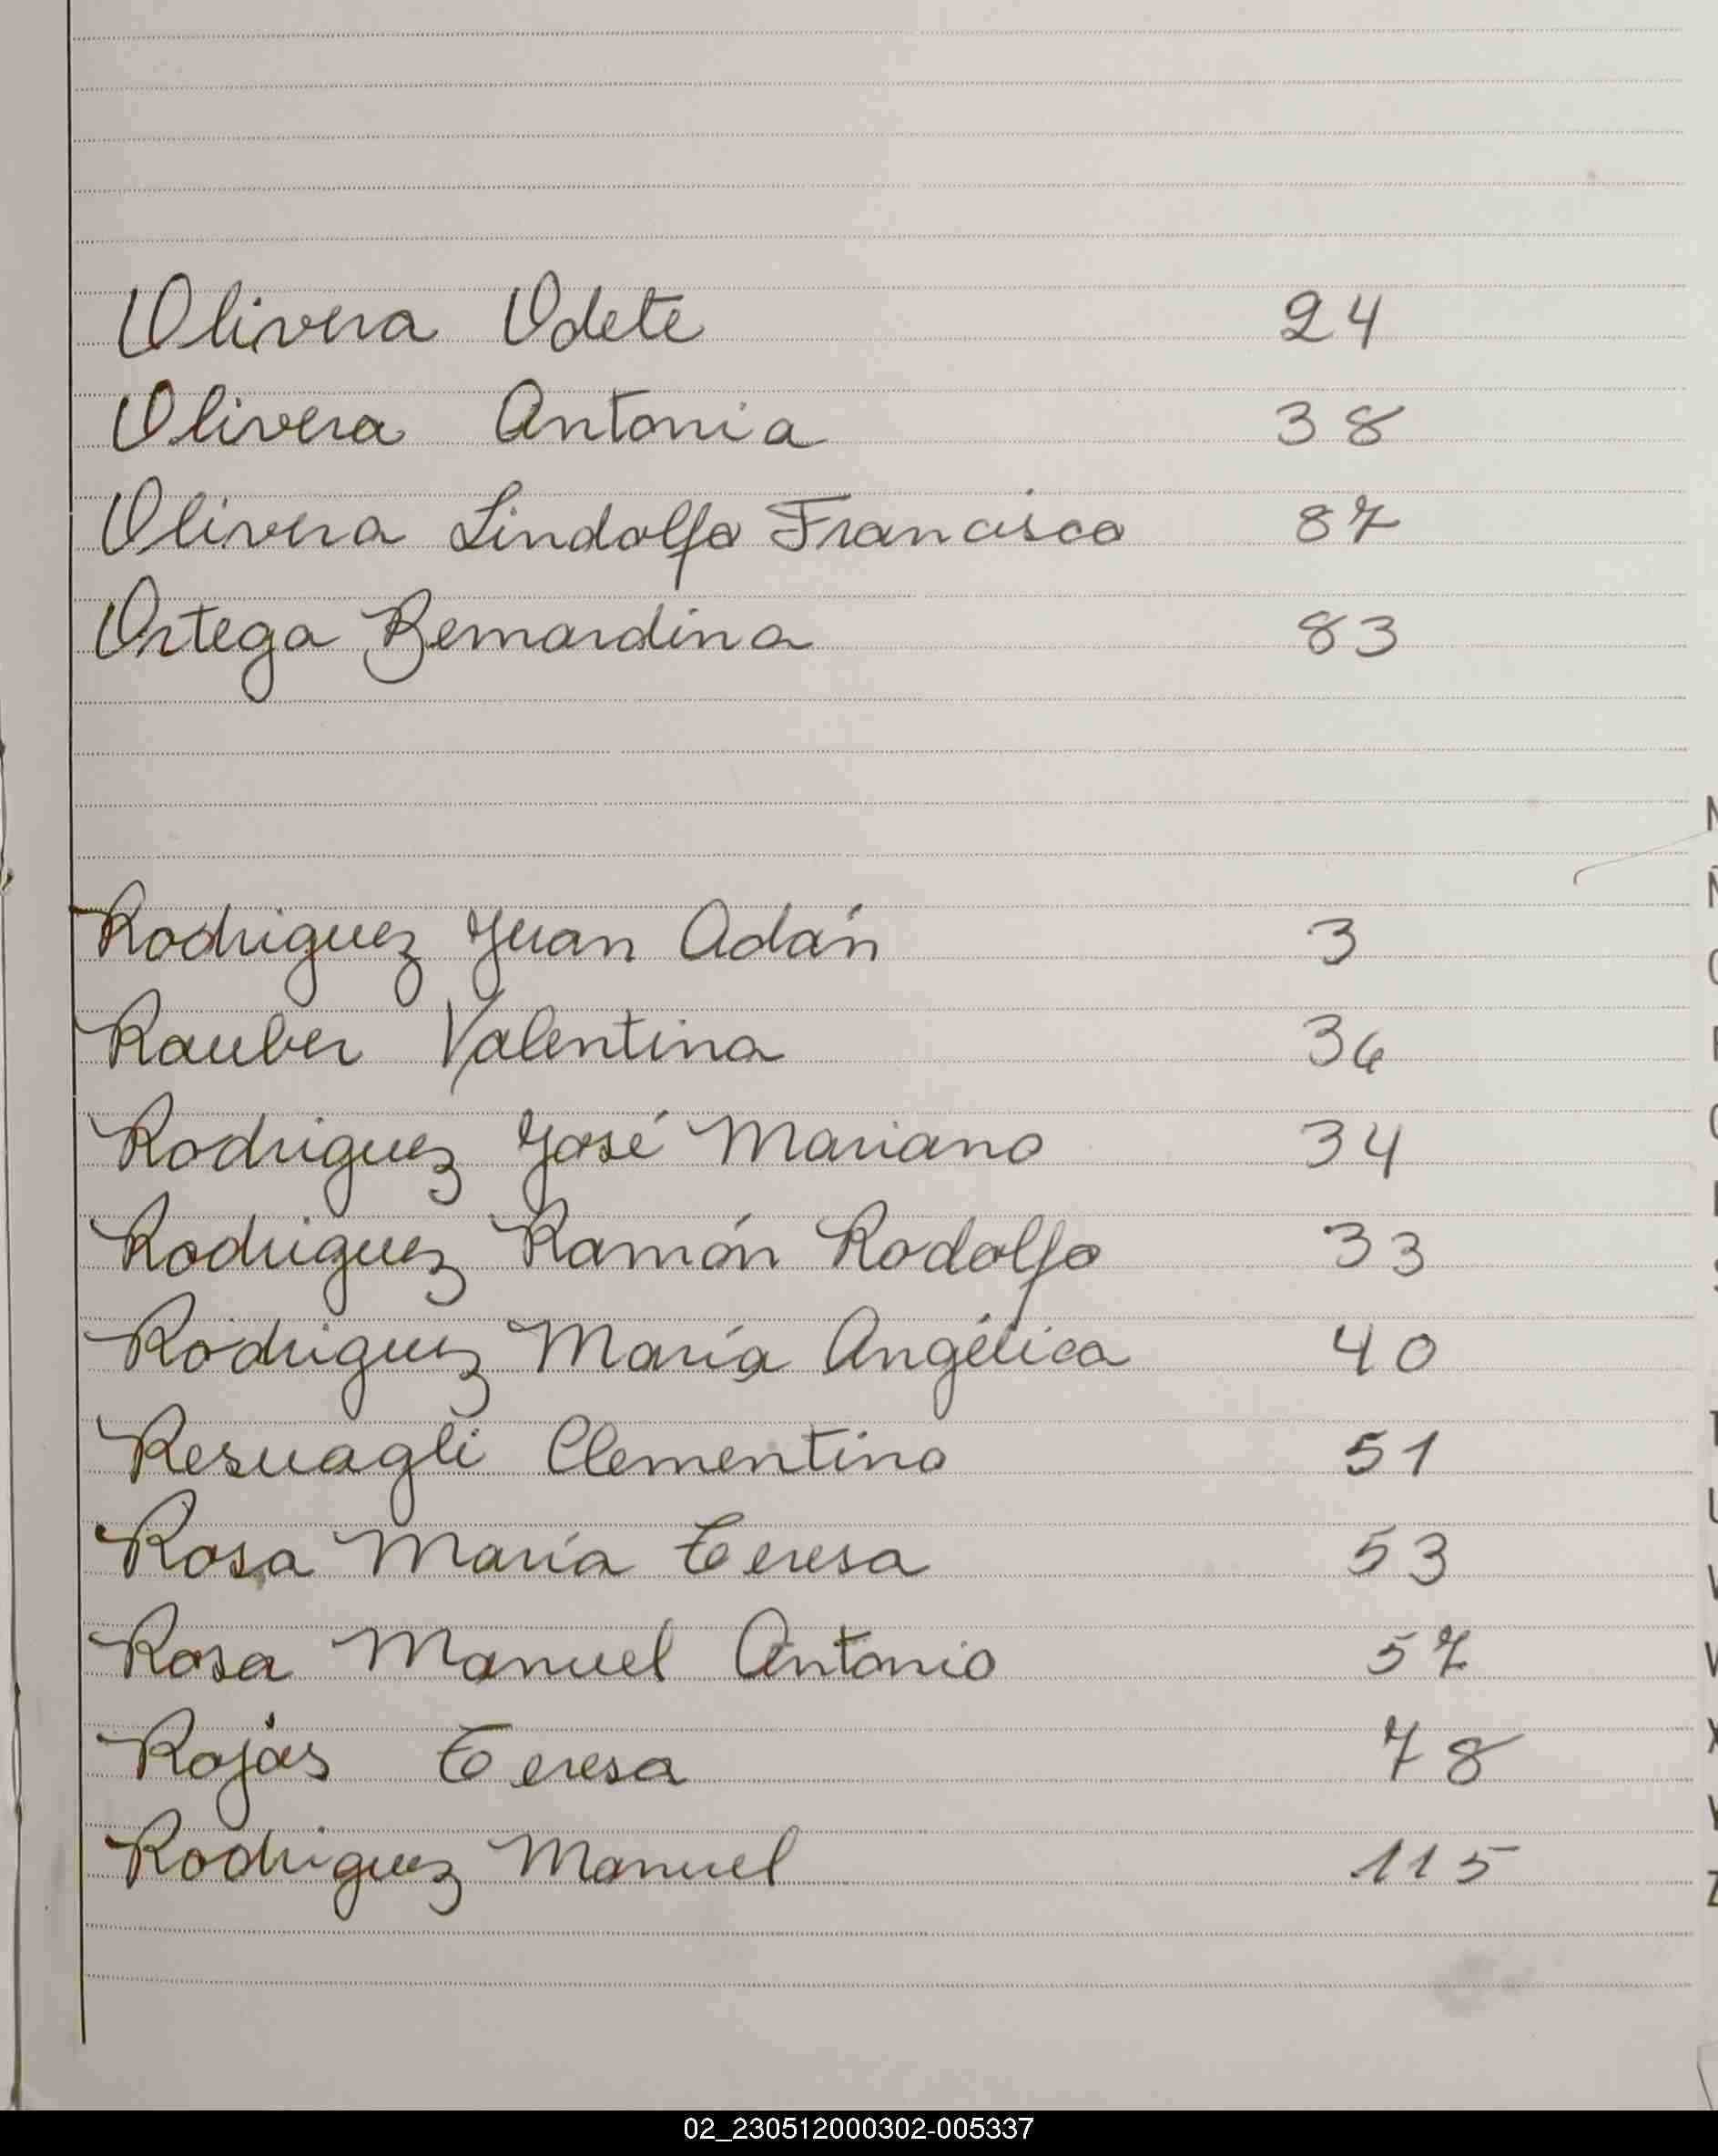 Olivera Odete 24
Olivera Antonia 38
Olivera Lindolfo Francisco 87
Ortega Bernardina 83
Rodriguez Juan Adán 3
Rauber Valentina 36
Rodriguez José Mariano 34
Rodriguez Ramón Rodolfo 33
Rodriguez María Angélica 40
Resuagli Clementino 51
Rosa María Teresa 53
Rosa Manuel Antonio 57
Rojas Teresa 78
Rodriguez Manuel 115
02_230512000302-005337